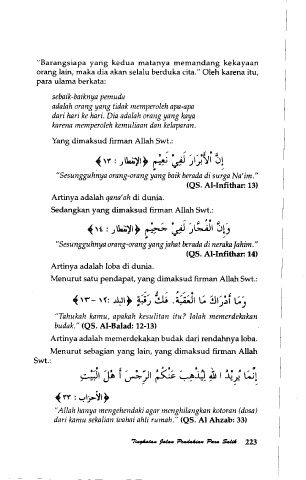 "Barangsiapa yang kedua matanya memandang kekayaan
orang lain, maka dia akan selalu berduka cita." Oleh karena itu,
para ulama berkata:
sebaik-baiknya pemuda
adalah orang yang tidak memperoleh apa-apa
dari hari ke hari. Dia adalah orang yang kaya
karena memperoleh kemuliaan dan kelaparan.
Yang dimaksud firman Allah Swt.:
إِنَّ الْأَبْرَارَ لَفِي نَعِيمٍ ﴿الإنفطار : ١٣﴾
"Sesungguhnya orang-orang yang baik berada di surga Na'im."
(QS. Al-Infithar: 13)
Artinya adalah qana'ah di dunia.
Sedangkan yang dimaksud firman Allah Swt.:
وَإِنَّ الْفُجَّارَ لَفِي جَحِيمٍ ﴿الإنفطار : ١٤﴾
"Sesungguhnya orang-orang yang jahat berada di neraka Jahim."
(QS. Al-Infithar: 14)
Artinya adalah loba di dunia.
Menurut satu pendapat, yang dimaksud firman Allah Swt.:
وَمَا أَدْرَاكَ مَا الْعَقَبَةُ. فَكُّ رَقَبَةٍ ﴿البلد : ١٢-١٣﴾
"Tahukah kamu, apakah kesulitan itu? Ialah memerdekakan
budak." (QS. Al-Balad: 12-13)
Artinya adalah memerdekakan budak dari rendahnya loba.
Menurut sebagian yang lain, yang dimaksud firman Allah
Swt.:
إِنَّمَا يُرِيدُ اللهُ لِيُذْهِبَ عَنْكُمُ الرِّجْسَ أَهْلَ الْبَيْتِ
﴿الأحزاب : ٣٣﴾
"Allah hanya mengehendaki agar menghilangkan kotoran (dosa)
dari kamu sekalian wahai ahli rumah." (QS. Al Ahzab: 33)
Tingkatan Jalan Pendakian Para Salik 223